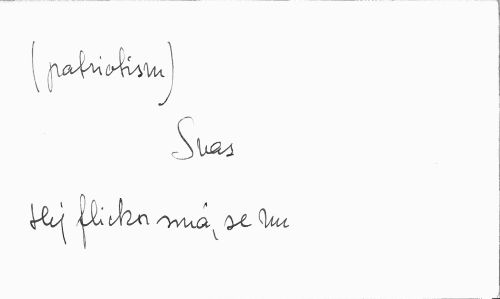 (patriotism)
Svas
Hej flickor små, se nu